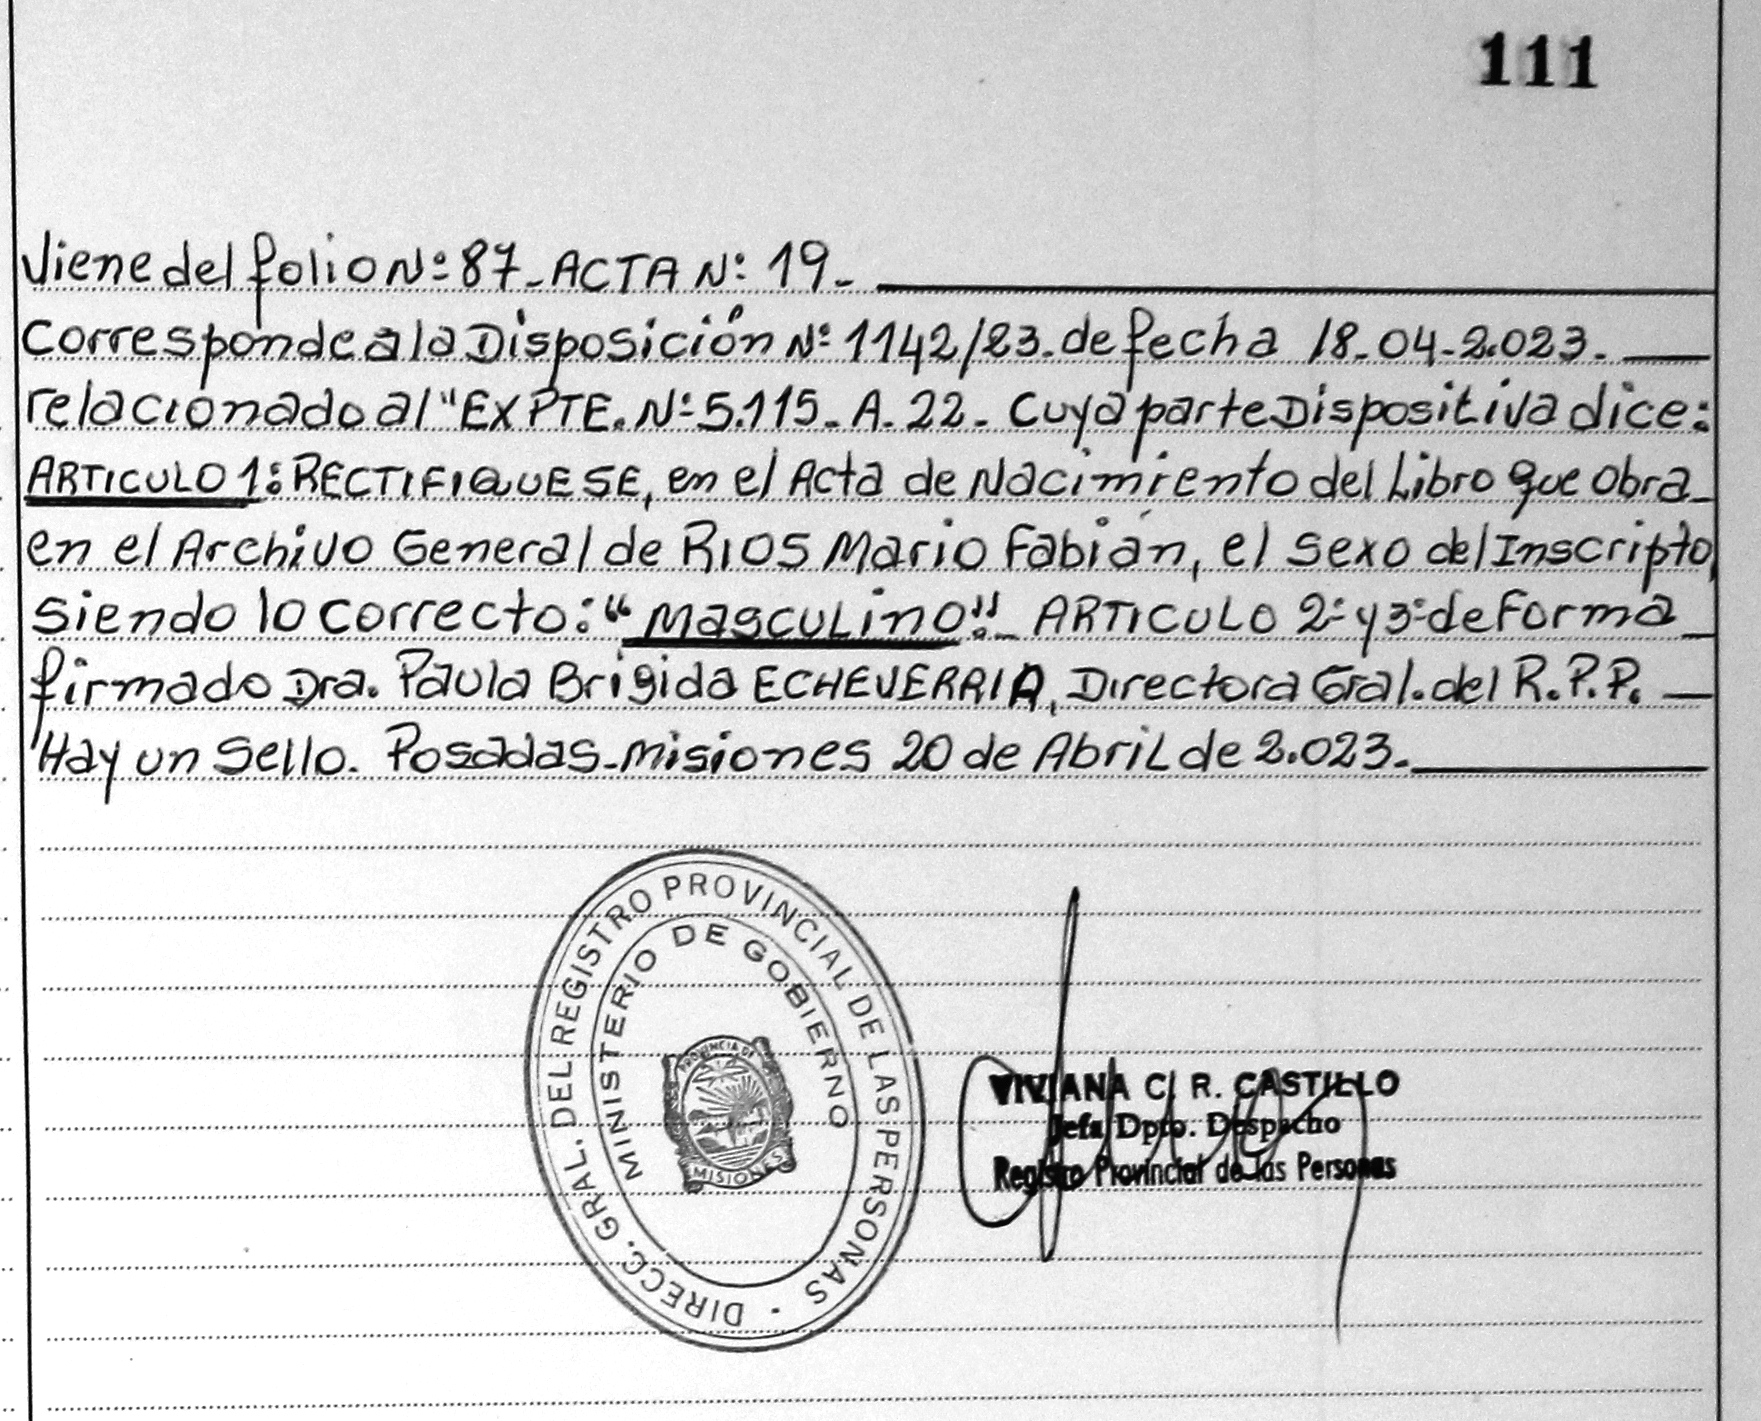 111
Viene del folio Nº 87_ ACTA Nº 19_
Corresponde a la Disposición Nº 1142/23. de fecha 18-04-2.023.
relacionado al "EXPTE. Nº 5.115. A. 22_ Cuya parte Dispositiva dice:
ARTICULO 1: RECTIFIQUESE, en el Acta de Nacimiento del Libro que obra
en el Archivo General de RIOS Mario Fabián, el sexo del Inscripto,
siendo lo correcto: "Masculino"._ ARTICULO 2º y 3º de Forma
firmado Dra. Paula Brigida ECHEVERRIA, Directora Gral. del R.P.P.
Hay un Sello. Posadas_Misiones 20 de Abril de 2.023.
DIRECC. GRAL. DEL REGISTRO PROVINCIAL DE LAS PERSONAS
MINISTERIO DE GOBIERNO
PROVINCIA DE
MISIONES
VIVIANA C. R. CASTILLO
Jefa Dpto. Despacho
Registro Provincial de las Personas